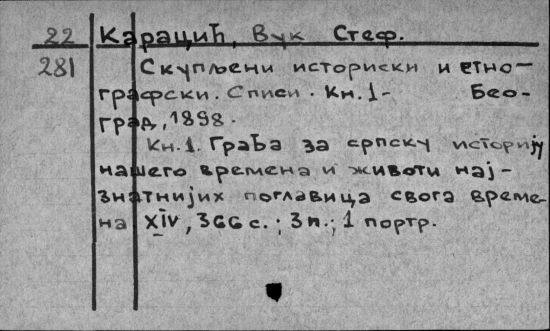 22 Караџић, Вук Стеф.
281 Скупљени историски и етно-
графски. Списи. Кн. 1- Бео-
град, 1898.
Кн. 1. Грађа за српску историју
нашего времена и животи нај-
знатнијих поглавица свога време-
на XIV, 366 с.; 3 п.; 1 портр.